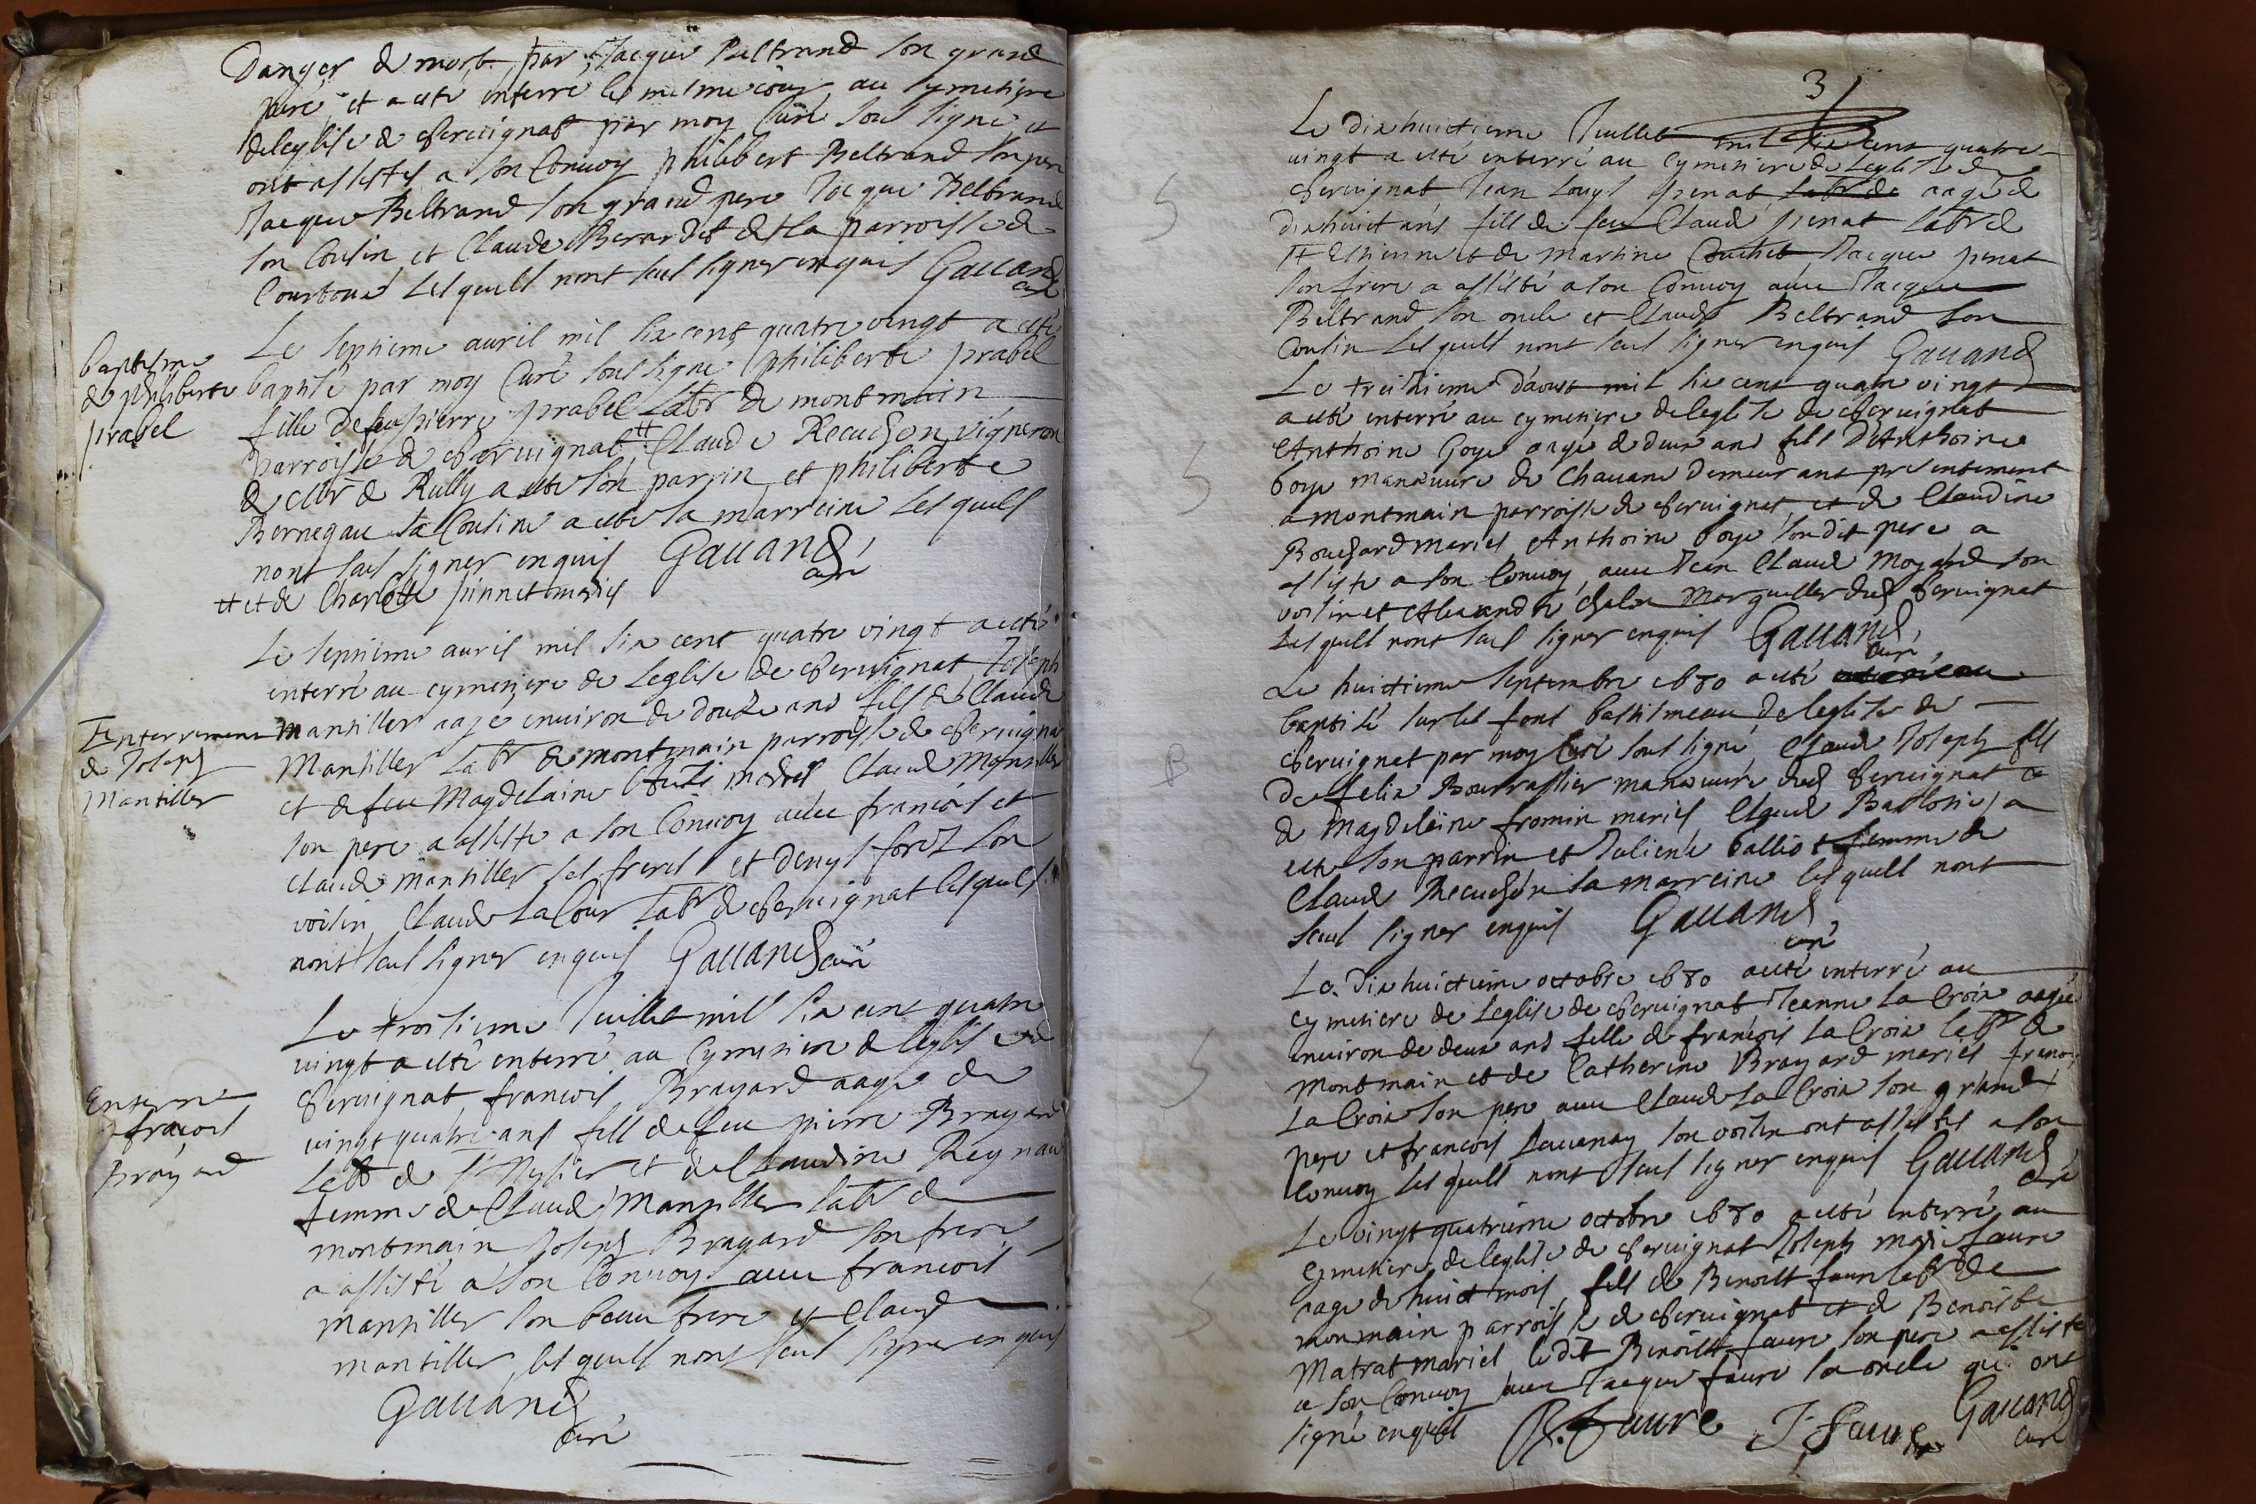 Danger de mort par Jacque Beltrand son grand
pere et a esté enterré le mesme jour au cymetiere
de leglise de Cheruignat par moy Curé sous signe et
ont assistes a son Conuoy philibert Beltrand son pere
Jacque Beltrand son grand pere Jacque Beltrand
son Cousin et Claude Berardet de la parroisse de
Courtoux Lesquels nont sceu signer enquis Gauand
curé
Le septieme auril mil six cent quatre vingt a esté
baptisé par moy Curé sous signe philiberte prabel
fille de feu pierre prabel Labr de montmain
parroisse de Cheruignat # Claude Recuchon vigneron
de Rully a esté son parrin et philiberte
Bernegau sa Cousine a esté sa marreine Lesquels
nont sceu signer enquis Gauand
curé
# et de Charlotte pinnet mariés
baptesme
de philiberte
prabel
Le septieme auril mil six cent quatre vingt a esté
enterré au cymetiere de Leglise de Cheruignat Joseph
mantiller aagé enuiron de douze ans fils de Claude
Mantiller Labr de montmain parroisse de Cheruignat
et de feu Magdelaine mariés Claude Mantiller
son pere a assisté a son Conuoy auec francois et
Claude mantiller ses freres et Denys foret son
voisin Claude La Cour Labr de Cheruignat lesquels
nont sceu signer enquis Gauand curé
Enterrement
de Joseph
Mantiller
Le troisieme Juillet mil six cent quatre
vingt a esté enterré au Cymetiere de leglise de
Cheruignat francois Brayard aagé de
vingt quatre ans fils de feu pierre Brayard
Labr de et de Claudine Reynaud
femme de Claude Mantiller labr de
montmain Joseph Brayard son frere
a assisté a son Conuoy auec francois
mantiller son beau frere et Claude
mantiller lesquels nont sceu signer enquis
Gauand
curé
Enterré
francois
Brayard
3
Le dix huictieme Juillet mil six cent quatre
vingt a esté enterré au Cymetiere de Leglise de
Cheruignat Jean Louys penat aagé de
dix huict ans fils de feu Claude penat Labr de
St Estienne et de Martine Jacque penat
son frere a assisté a son Conuoy auec Jacque
Beltrand son oncle et Claude Beltrand son
Cousin Lesquels nont sceu signer enquis Gauand
Le treisieme d'aoust mil six cent quatre vingt
a esté enterré au cymetiere de leglise de Cheruignat
Anthoine Goye aagé de deux ans fils D'Anthoine
Goye manœuure de Chauane demeurant presentement
a montmain parroisse de Cheruignat et de Claudine
Bouchard mariés Anthoine Goye son dit pere a
assisté a son Conuoy auec Jean Claude Moyard son
voisin et Alexandre Chalon Marguiller dud Cheruignat
Lesquels nont sceu signer enquis Gauand
curé
Le huictieme septembre 1680 a esté
baptisé sur les fons baptismeaux de leglise de
Cheruignat par moy Curé sous signé Claude Joseph fils
de felix Bourrassier manœuure dud Cheruignat et
de Magdeleine fromin mariés Claude a
esté son parrin et Juliene balliot femme de
Claude Recuchon sa marreine lesquels nont
sceu signer enquis Gauand
curé
Le dix huictieme octobre 1680 a esté enterré au
cymetiere de Leglise de Cheruignat Jeanne La Croix aagée
enuiron de deux ans fille de francois La Croix labr de
Montmain et de Catherine Brayard mariés francois
La Croix son pere auec Claude La Croix son grand
pere et francois son voisin ont assistes a son
Conuoy Lesquels nont sceu signer enquis Gauand
curé
Le vingt quatrieme octobre 1680 a esté enterré au
cymetiere de leglise de Cheruignat Joseph marie faure
aagé de huict mois fils de Benoist faure labr de
monmain parroisse de Cheruignat et de Benoiste
Matrat mariés le dit Benoist faure son pere a assisté
a son Conuoy auec Jacque faure son oncle qui ont
signé enquis B. Faure J faure Gauand
curé